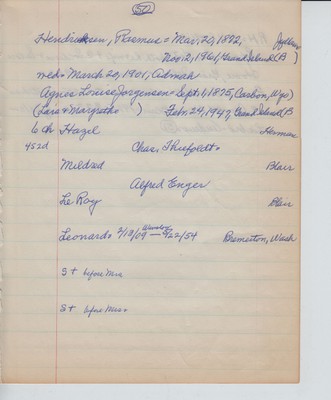 50
Hendricksen, Rasmus = Mar, 20, 1872,
Nov 12, 1961, Grand Island (B )
wed = March 20, 1901, Admah
Agnes Louise Jorgensen = Sept 1, 1875, Carbon, Wyo)
(Lars & Margrethe ) Febr. 24, 1947, Grand Island (B
6 ch Hazel Herman
4s2d Chas.
Mildred Blair
Alfred Enger
Le Roy Blair
Leonard = 2/13/09 — 9/22/54 Bremerton, Wash
St before Mr
St before Mrs